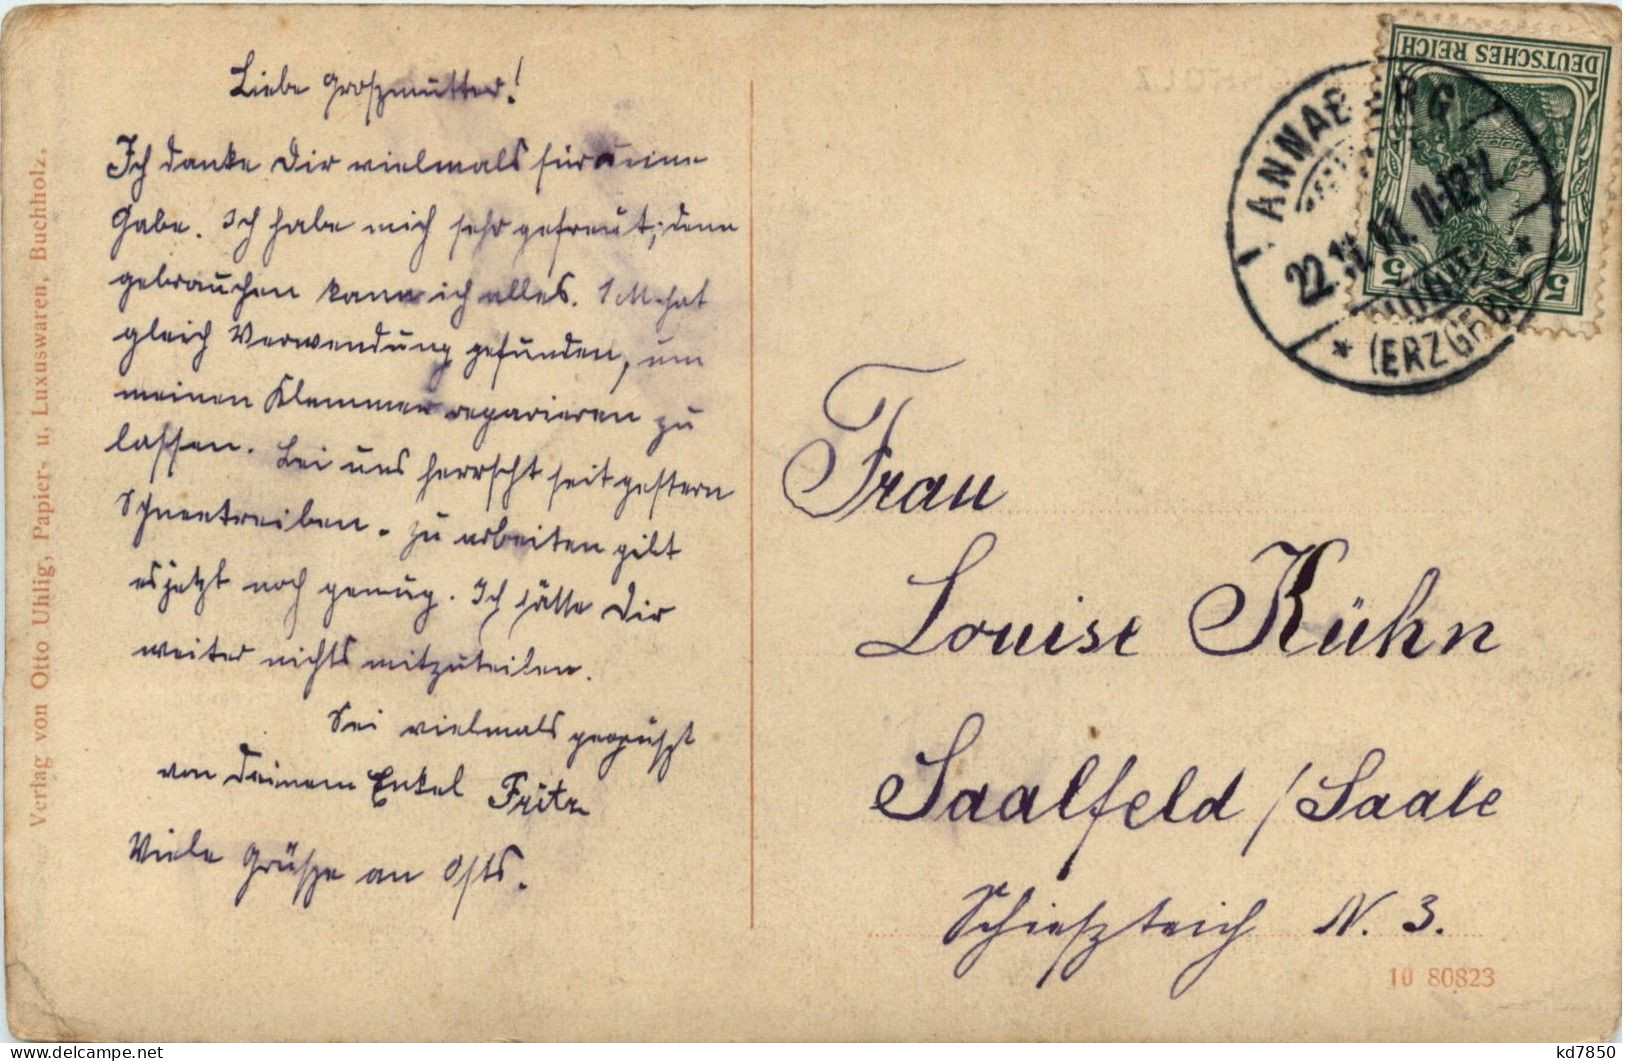 Liebe Groszmutter!
Ich danke Dir vielmals für deine
Gabe. Ich habe mich sehr gefreut, denn
gebrauchen kann ich alles. 1 M. hat
gleich Verwendung gefunden, um
meinen Klemmer reparieren zu
lassen. Bei uns herrscht seit gestern
Schneetreiben. Zu arbeiten gibt
es jetzt noch genug. Ich hätte Dir
weiter nichts mitzuteilen.
Sei vielmals gegrüszt
von Deinem Enkel Fritz
Viele Grüsze an
Verlag von Otto Uhlig, Papier- u. Luxuswaren, Buchholz.
DEUTSCHES REICH
5 5
ANNABERG
22.11.11. 11-12 V.
* (ERZGEB) *
Frau
Louise Kühn
Saalfeld / Saale
Schieszteich N. 3.
10 80823
kd7850